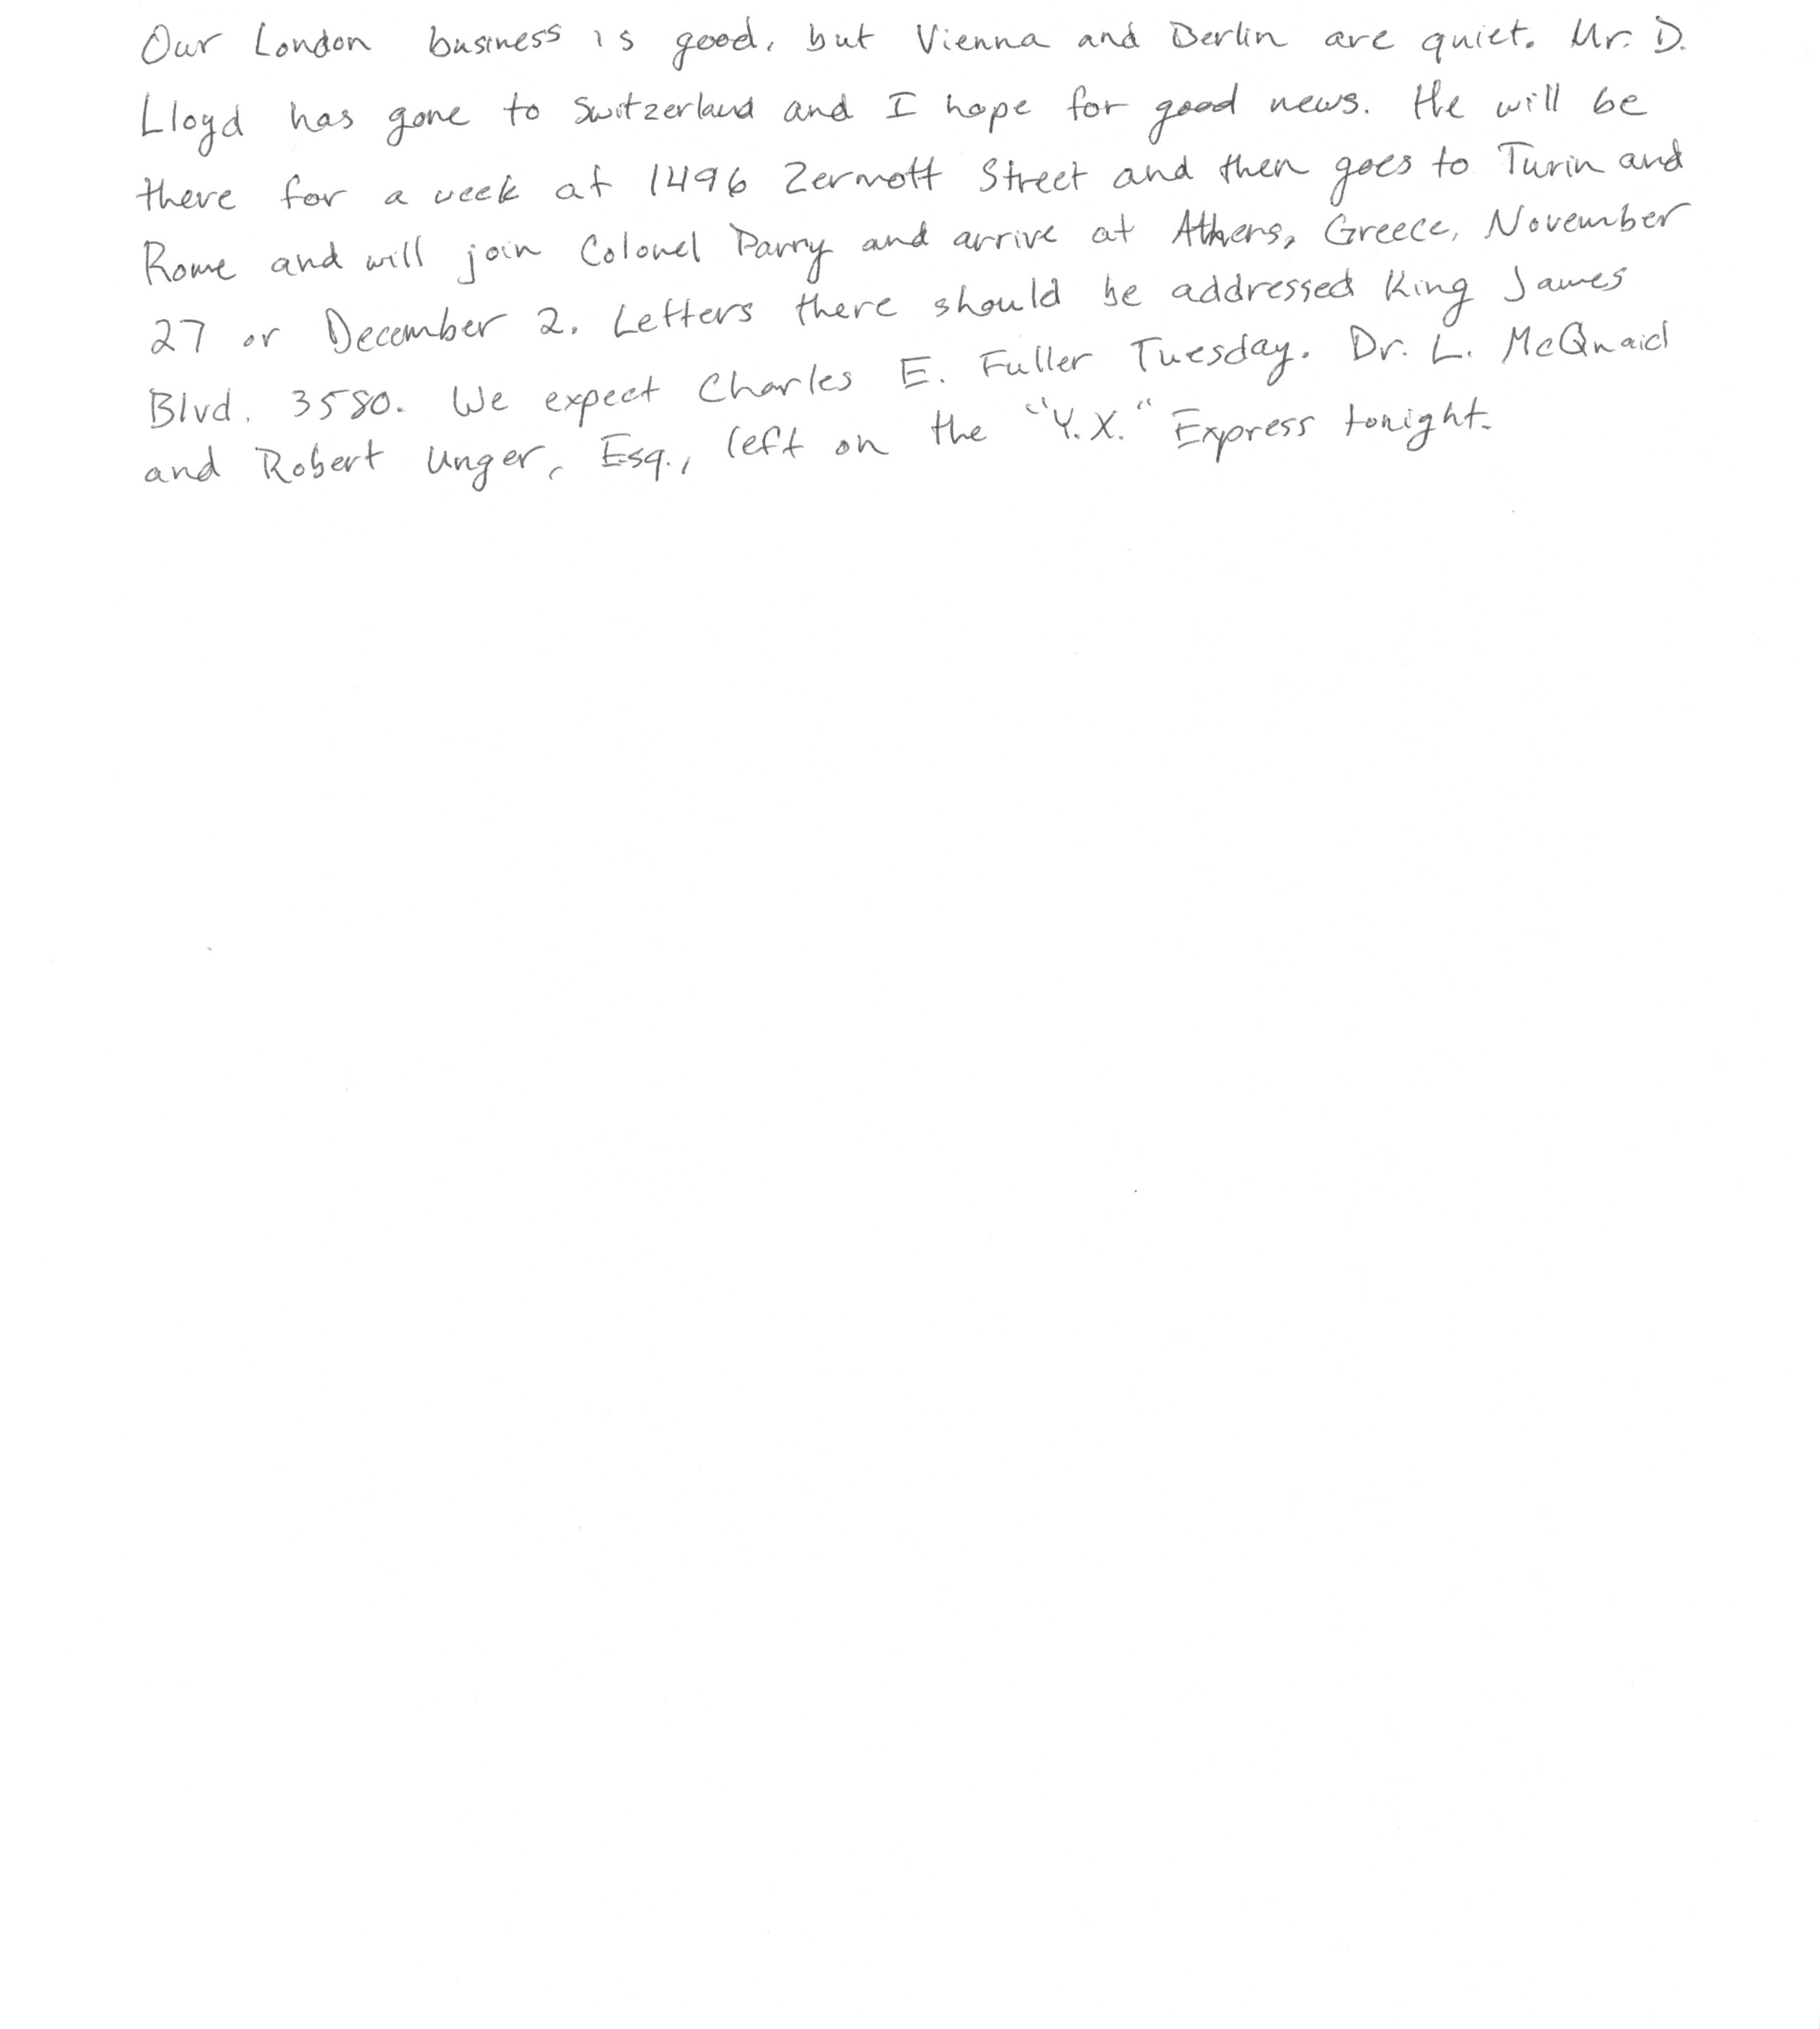 Our London business is good, but Vienna and Berlin are quiet. Mr. D.
Lloyd has gone to Switzerland and I hope for good news. He will be
there for a week at 1496 Zermott Street and then goes to Turin and
Rome and will join Colonel Parry and arrive at Athens, Greece, November
27 or December 2. Letters there should be addressed King James
Blvd. 3580. We expect Charles E. Fuller Tuesday. Dr. L. McQuaid
and Robert Unger, Esq., left on the "Y.X." Express tonight.